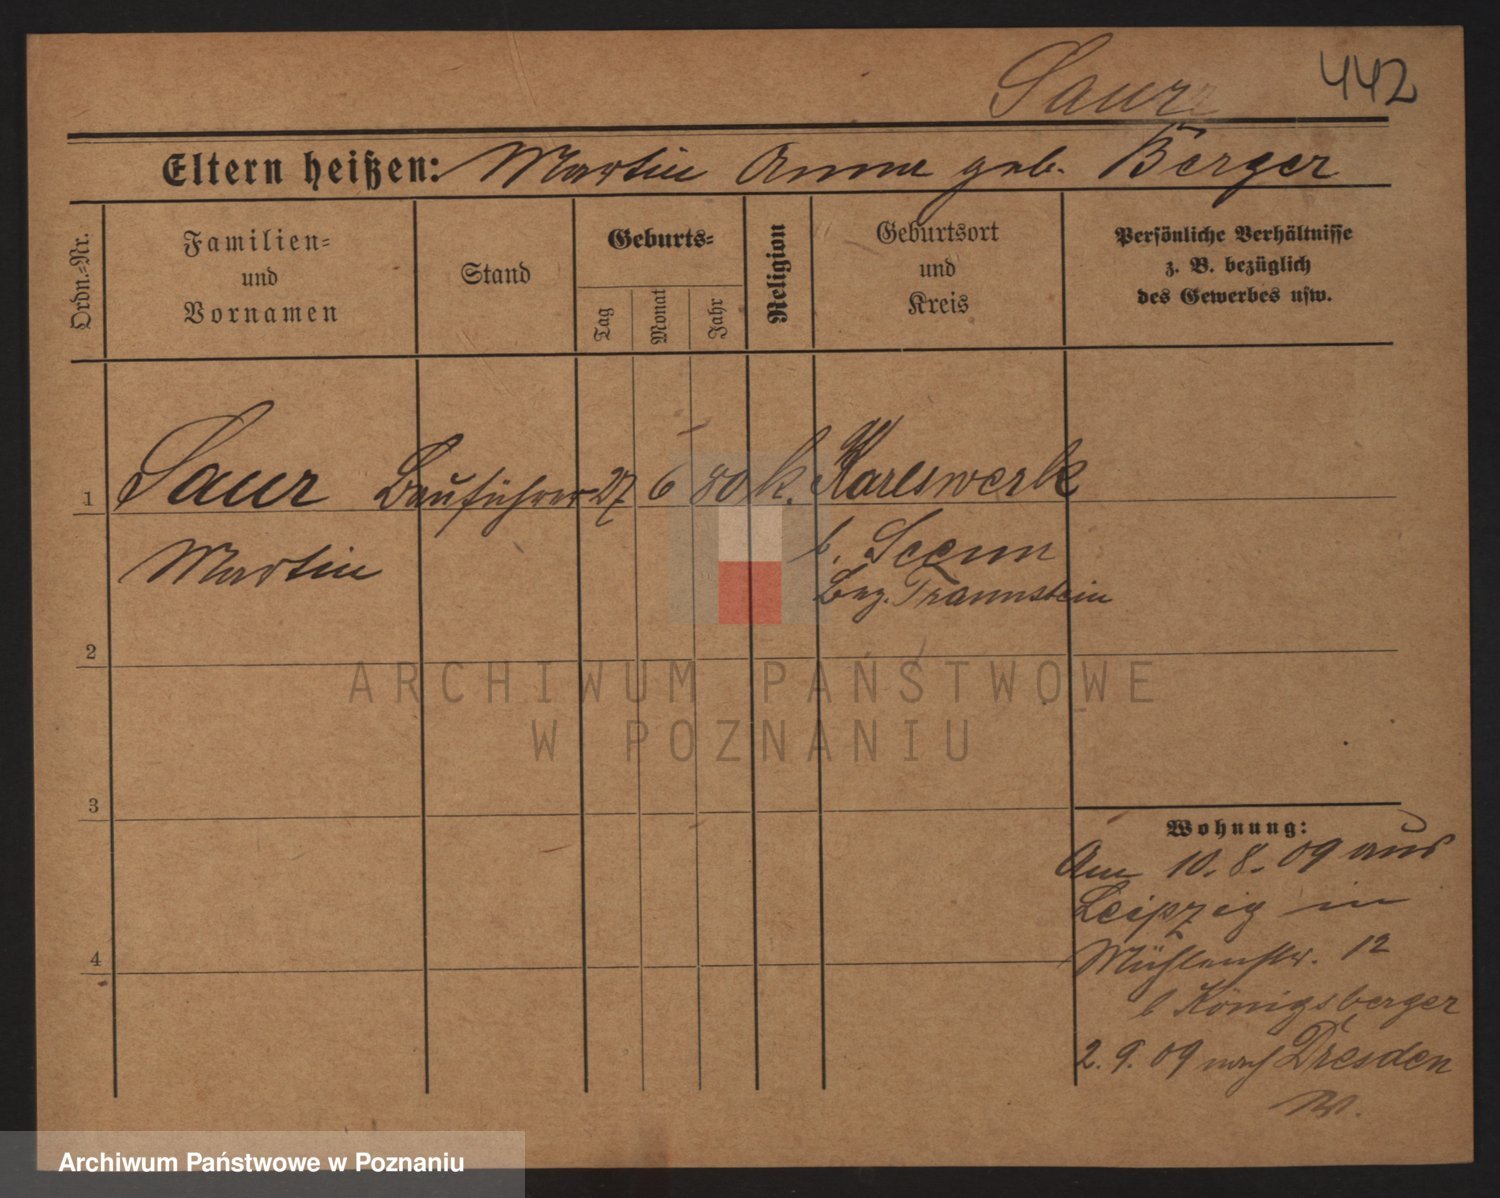 Saur
442
Eltern heißen: Martin Anna geb. Berger
Ordn.-Nr.
Familien-
und
Vornamen
Stand
Geburts-
Tag
Monat
Jahr
Religion
Geburtsort
und
Kreis
Persönliche Verhältnisse
z. B. bezüglich
des Gewerbes usw.
1 Saur Bauführer 27 6 80 k. Karlswerk
Martin b. Seenn
Bez. Traunstein
2
3
4
Wohnung:
Am 10.8.09 aus
Leipzig in
Mühlenstr. 12
b Königsberger
2.9.09 nach Dresden
ARCHIWUM PAŃSTWOWE
W POZNANIU
Archiwum Państwowe w Poznaniu